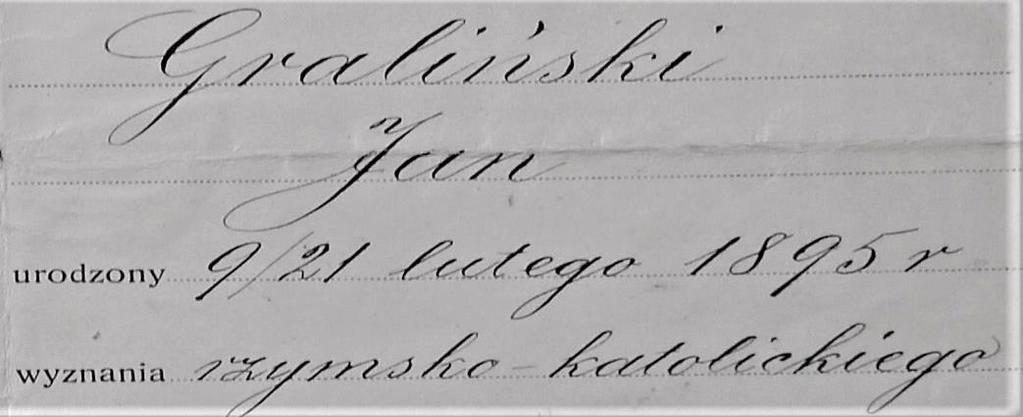 Graliński
Jan
urodzony 9/21 lutego 1895 r
wyznania rzymsko-katolickiego